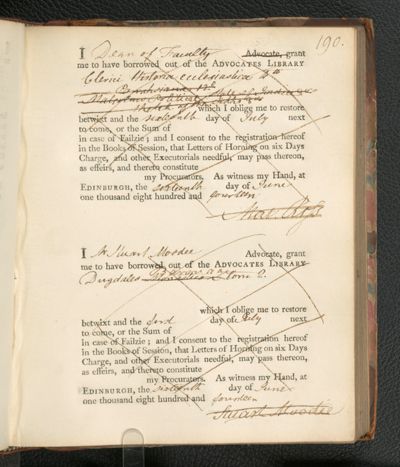 190.
I Dean of Faculty Advocate, grant
me to have borrowed out of the ADVOCATES LIBRARY
Clerici Historia ecclesiastica
which I oblige me to restore
betwixt and the sixteenth day of July next
to come, or the Sum of
in case of Failzie; and I consent to the registration hereof
in the Books of Session, that Letters of Horning on six Days
Charge, and other Executorials needful, may pass thereon,
as effeirs, and thereto constitute
my Procurators. As witness my Hand, at
EDINBURGH, the sixteenth day of June
one thousand eight hundred and fourteen
I Stuart Moodie Advocate, grant
me to have borrowed out of the ADVOCATES LIBRARY
Dugdales Monasticon Tom 2.
which I oblige me to restore
betwixt and the day of July next
to come, or the Sum of
in case of Failzie; and I consent to the registration hereof
in the Books of Session, that Letters of Horning on six Days
Charge, and other Executorials needful, may pass thereon,
as effeirs, and thereto constitute
my Procurators. As witness my Hand, at
EDINBURGH, the sixteenth day of June
one thousand eight hundred and fourteen
Stuart Moodie